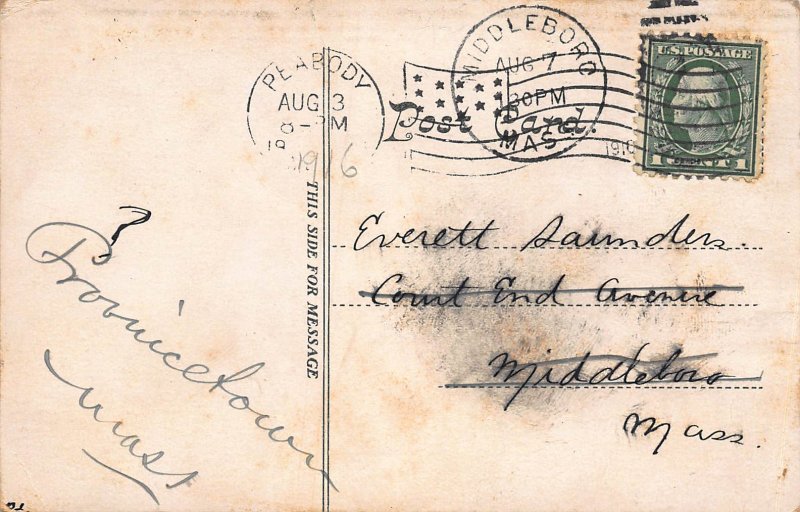 PEABODY
AUG 3
8-PM
1916
MIDDLEBORO
AUG 7
30PM
MAS
1916
U.S. POSTAGE
1 CENT 1
Post Card.
THIS SIDE FOR MESSAGE
Everett Saunders.
Court End Avenue
Middleboro
Mass.
?
Provincetown
Mass